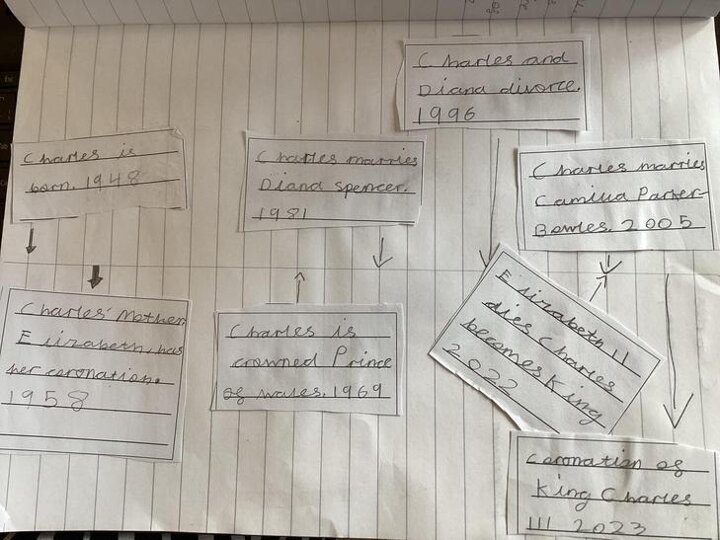 Charles and
Diana divorce.
1996
Charles is
born. 1948
Charles marries
Diana spencer.
1981
Charles marries
Camilla Parker-
Bowles. 2005
Charles' Mother
Elizabeth, has
her coronation.
1958
Charles is
crowned Prince
of wales. 1969
Elizabeth II
dies Charles
becomes King
2022
Coronation of
King Charles
III 2023